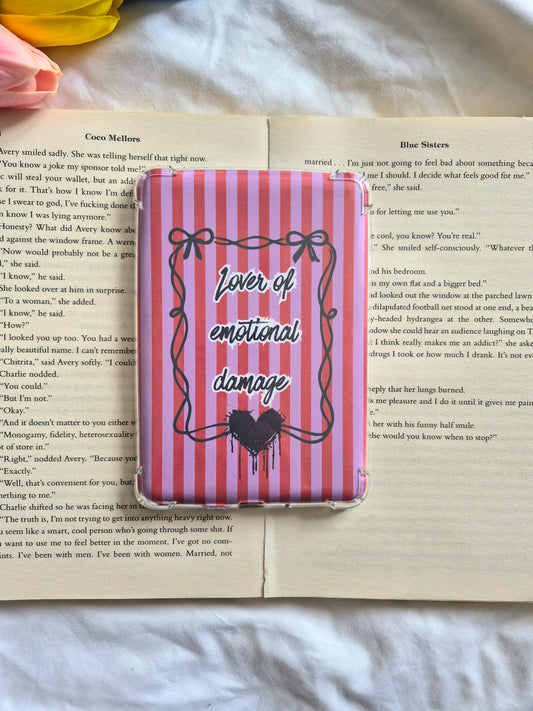 Coco Mellors
Avery smiled sadly. She was telling herself that right now.
"You know a joke my sponsor told me
ic will steal your wallet, but an add
k for it. That's how I know I'm def
se I swear to god, I've fucking done th
n know I was lying anymore."
Honesty? What did Avery know abou
d against the window frame. A warm
"Now would probably not be a grea
d," she said.
"I know," he said.
She looked over at him in surprise.
"To a woman," she added.
"I know," he said.
"How?"
"I looked you up too. You had a wed
eally beautiful name. I can't remember
"Chitrita," said Avery softly. "I could
Charlie nodded.
"You could."
"But I'm not."
"Okay."
"And it doesn't matter to you either w
"Monogamy, fidelity, heterosexuality
ot of store in."
"Right," nodded Avery. "Because you
"Exactly."
"Well, that's convenient for you, but
nething to me."
Charlie shifted so he was facing her in th
"The truth is, I'm not trying to get into anything heavy right now.
u seem like a smart, cool person who's going through some shit. If
want to use me to feel better in the moment, I've got no com-
ints. I've been with men. I've been with women. Married, not
Lover of
emotional
damage
Blue Sisters
married . . . I'm just not going to feel bad about something beca
se I should. I decide what feels good for me."
free," she said.
for letting me use you."
cool, you know? You're real."
" She smiled self-consciously. "Whatever th
nd his bedroom.
is my own flat and a bigger bed."
and looked out the window at the parched lawn
dilapidated football net stood at one end, a bea
y-headed hydrangea at the other. Somewhe
ndow she could hear an audience laughing on T
I think really makes me an addict?" she aske
drugs I took or how much I drank. It's not eve
eeply that her lungs burned.
s me pleasure and I do it until it gives me pain
e."
her with his funny half smile.
else would you know when to stop?"